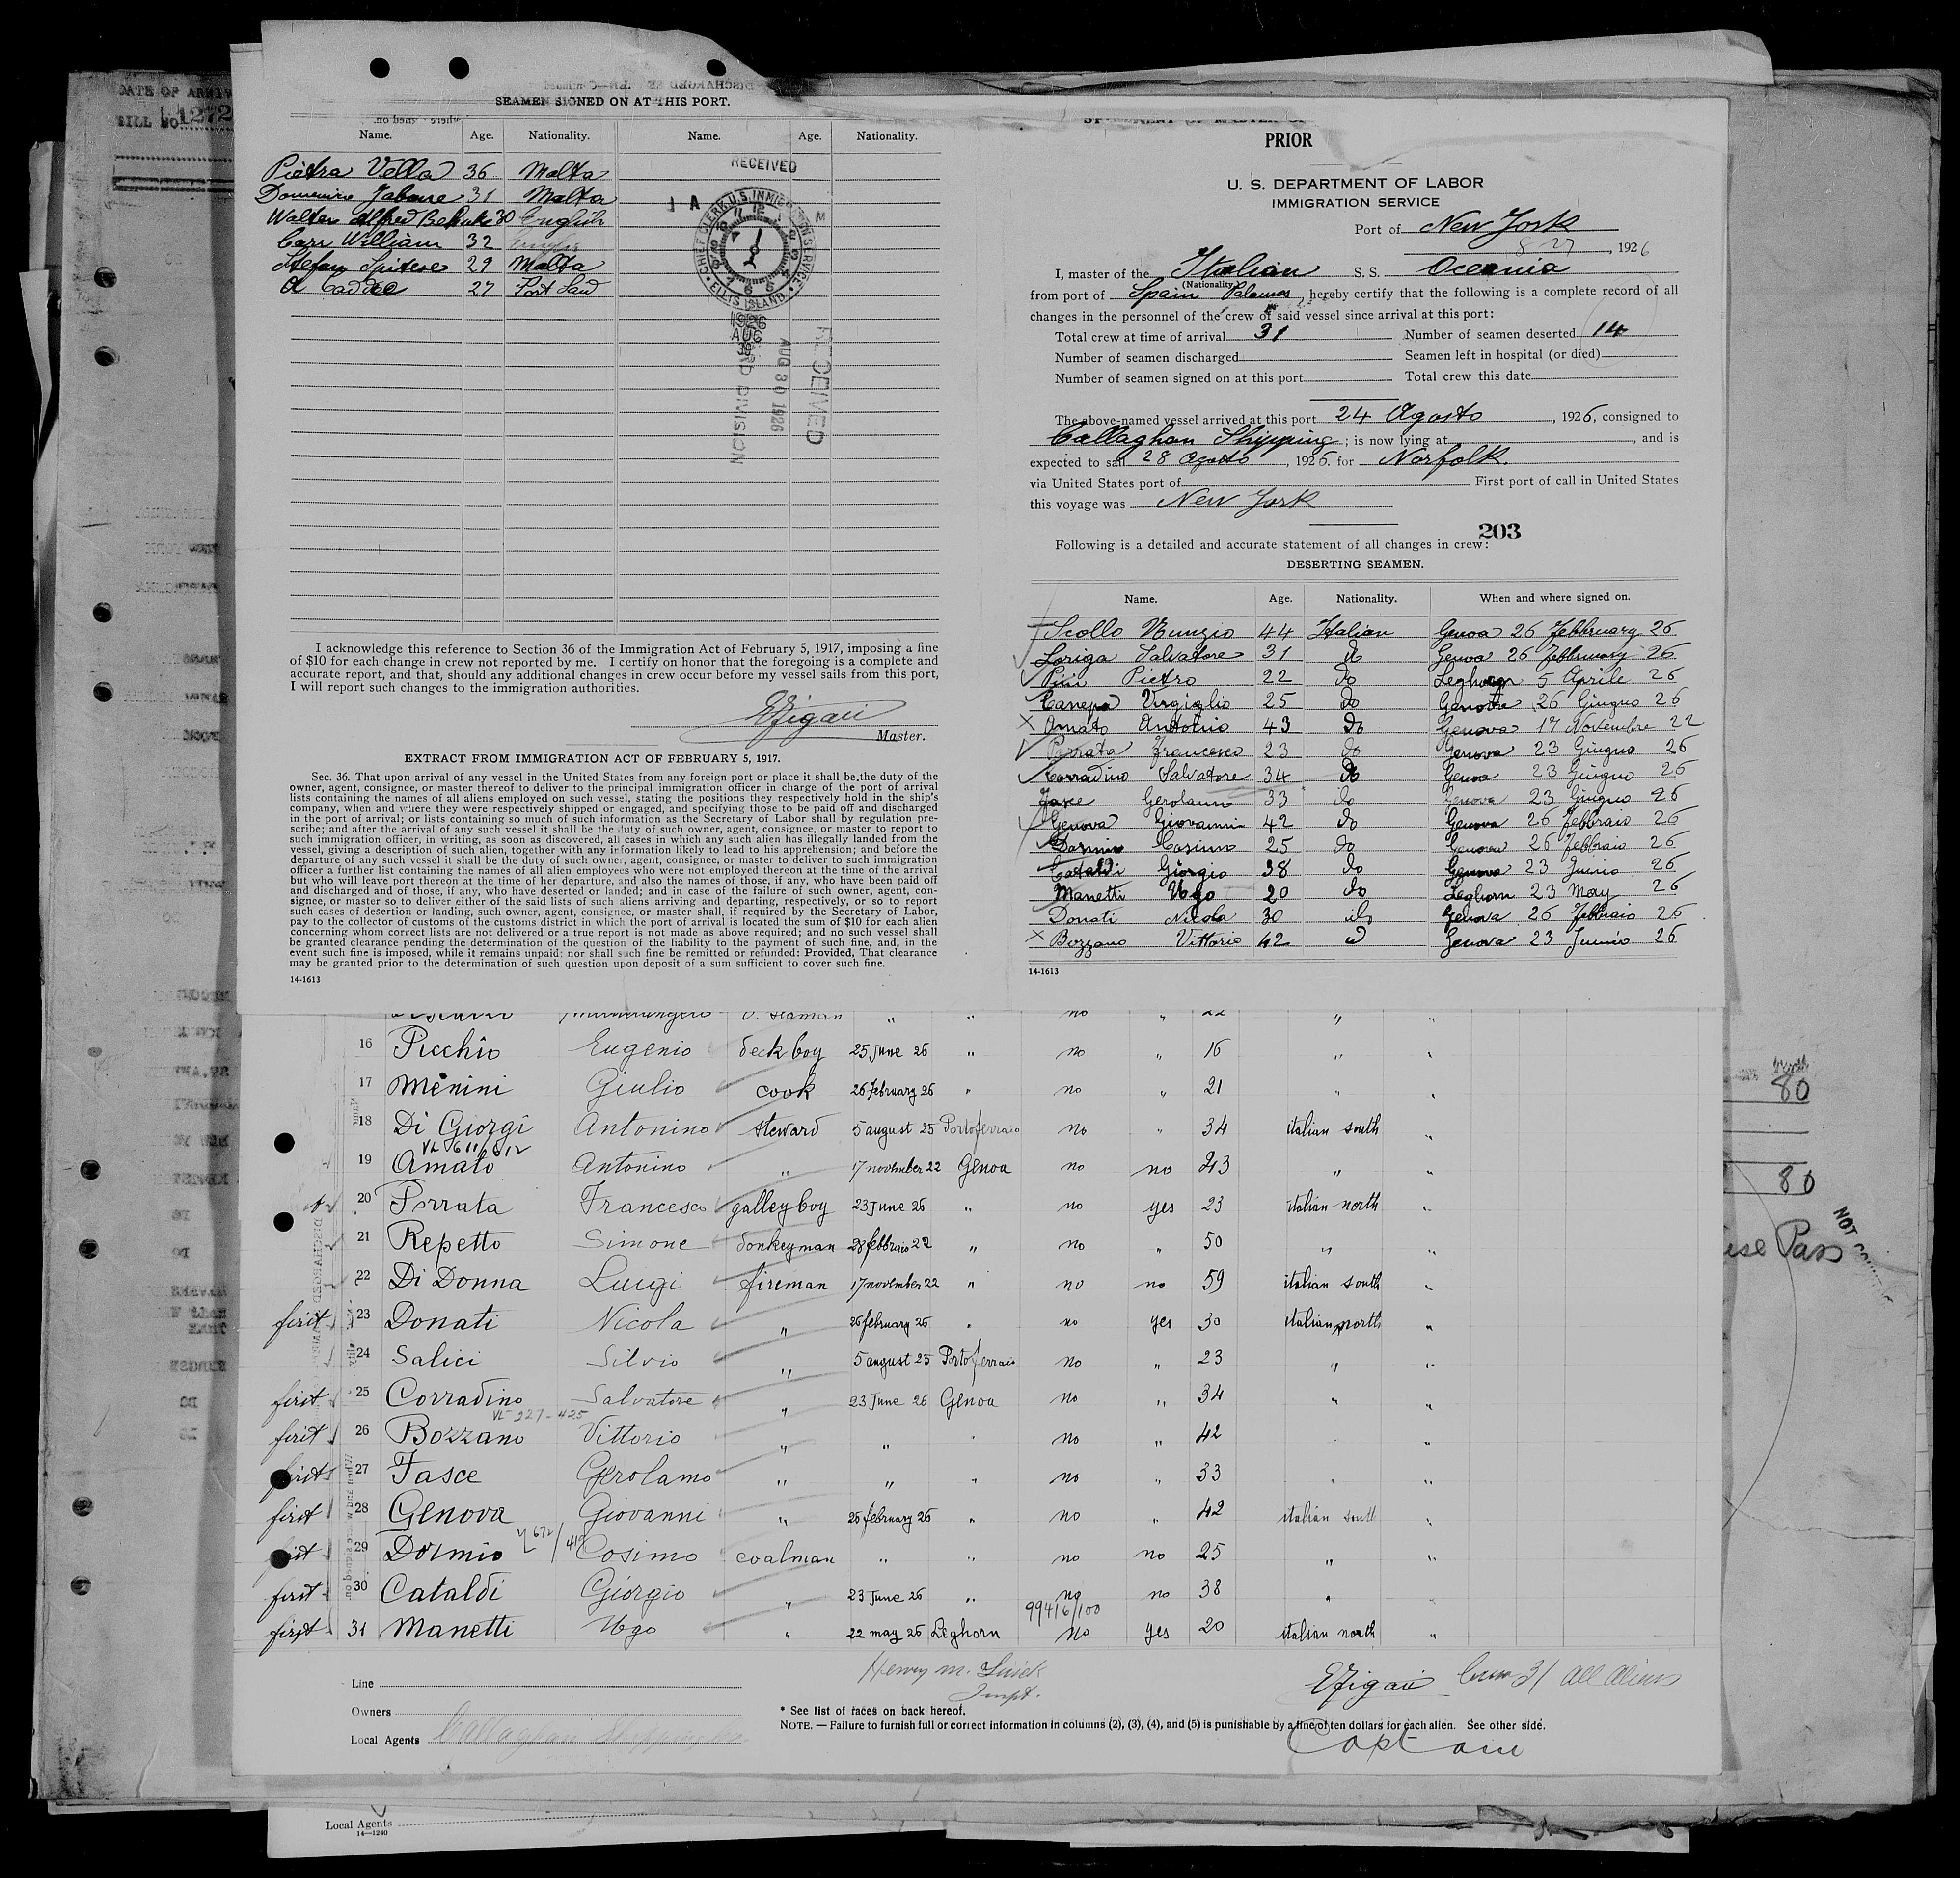 DATE OF ARRIV
BILL NO. 1272
SEAMEN SIGNED ON AT THIS PORT.
Name. Age. Nationality. Name. Age. Nationality.
Pietra Vella 36 Malta
Domenico 31 Malta
Walter Alfred 30 English
Carr William 32
Stefan Spitese 29 Malta
27 Port Said
RECEIVED
CHIEF CLERK U.S. IMMIGRATION SERVICE
ELLIS ISLAND
1926
AUG
30
RECEIVED
AUG 30 1926
RD DIVISION
I acknowledge this reference to Section 36 of the Immigration Act of February 5, 1917, imposing a fine
of $10 for each change in crew not reported by me. I certify on honor that the foregoing is a complete and
accurate report, and that, should any additional changes in crew occur before my vessel sails from this port,
I will report such changes to the immigration authorities.
EFigari
Master.
EXTRACT FROM IMMIGRATION ACT OF FEBRUARY 5, 1917.
Sec. 36. That upon arrival of any vessel in the United States from any foreign port or place it shall be the duty of the
owner, agent, consignee, or master thereof to deliver to the principal immigration officer in charge of the port of arrival
lists containing the names of all aliens employed on such vessel, stating the positions they respectively hold in the ship's
company, when and where they were respectively shipped or engaged, and specifying those to be paid off and discharged
in the port of arrival; or lists containing so much of such information as the Secretary of Labor shall by regulation pre-
scribe; and after the arrival of any such vessel it shall be the duty of such owner, agent, consignee, or master to report to
such immigration officer, in writing, as soon as discovered, all cases in which any such alien has illegally landed from the
vessel, giving a description of such alien, together with any information likely to lead to his apprehension; and before the
departure of any such vessel it shall be the duty of such owner, agent, consignee, or master to deliver to such immigration
officer a further list containing the names of all alien employees who were not employed thereon at the time of the arrival
but who will leave port thereon at the time of her departure, and also the names of those, if any, who have been paid off
and discharged and of those, if any, who have deserted or landed; and in case of the failure of such owner, agent, con-
signee, or master so to deliver either of the said lists of such aliens arriving and departing, respectively, or so to report
such cases of desertion or landing, such owner, agent, consignee, or master shall, if required by the Secretary of Labor,
pay to the collector of customs of the customs district in which the port of arrival is located the sum of $10 for each alien
concerning whom correct lists are not delivered or a true report is not made as above required; and no such vessel shall
be granted clearance pending the determination of the question of the liability to the payment of such fine, and, in the
event such fine is imposed, while it remains unpaid; nor shall such fine be remitted or refunded: Provided, That clearance
may be granted prior to the determination of such question upon deposit of a sum sufficient to cover such fine.
14-1613
PRIOR
U. S. DEPARTMENT OF LABOR
IMMIGRATION SERVICE
Port of New York
8 27, 1926
I, master of the Italian S. S. Oceania
(Nationality)
from port of Spain Palamos, hereby certify that the following is a complete record of all
changes in the personnel of the crew of said vessel since arrival at this port:
Total crew at time of arrival 31 Number of seamen deserted 14
Number of seamen discharged Seamen left in hospital (or died)
Number of seamen signed on at this port Total crew this date
The above-named vessel arrived at this port 24 Agosto, 1926, consigned to
Callaghan Shipping; is now lying at , and is
expected to sail 28 Agosto, 1926. for Norfolk.
via United States port of First port of call in United States
this voyage was New York
203
Following is a detailed and accurate statement of all changes in crew:
DESERTING SEAMEN.
Name. Age. Nationality. When and where signed on.
Scollo Nunzio 44 Italian Genoa 26 Febbruary 26
Loriga Salvatore 31 do Genoa 26 Febbruary 26
Pini Pietro 22 do Leghorn 5 Aprile 26
Canepa Virgiglio 25 do Genova 26 Giugno 26
Amato Antonio 43 do Genova 17 Novembre 22
Porrata Francesco 23 do Genova 23 Giugno 26
Corradino Salvatore 34 do Genova 23 Giugno 26
Fasce Gerolamo 33 do Genova 23 Giugno 26
Genova Giovanni 42 do Genova 26 Febbraio 26
Cosimo 25 do Genova 26 Febbraio 26
Cataldi Giorgio 38 do Genova 23 Junio 26
Manetti Ugo 20 do Leghorn 23 May 26
Donati Nicola 30 do Genova 26 Febbraio 26
Bozzano Vittorio 42 do Genova 23 Junio 26
14-1613
no " 22 " "
16 Picchio Eugenio deck boy 25 June 26 " no " 16 " "
17 Menini Giulio cook 26 february 26 " no " 21 " "
18 Di Giorgi Antonino steward 5 august 25 Portoferraio no " 34 italian south "
VL 611/612
19 Amato Antonino " 17 november 22 Genoa no no 43 " "
20 Porrata Francesco galley boy 23 June 26 " no yes 23 italian north "
21 Repetto Simone donkeyman 28 febbraio 22 " no " 50 " "
22 Di Donna Luigi fireman 17 november 22 " no no 59 italian south "
first 23 Donati Nicola " 26 february 26 " no yes 30 italian north "
24 Salici Silvio " 5 august 25 Portoferraio no " 23 " "
first 25 Corradino Salvatore " 23 June 26 Genoa no " 34 " "
VL-927-425
first 26 Bozzano Vittorio " " " no " 42 " "
first 27 Fasce Gerolamo " " " no " 33 " "
first 28 Genova Giovanni " 26 february 26 " no " 42 italian south "
first 29 Dormio Cosimo coalman " " no no 25 " "
first 30 Cataldi Giorgio " 23 June 26 " no no 38 " "
99416/100
first 31 Manetti Ugo " 22 may 26 Leghorn no yes 20 italian north "
Line
Owners
Local Agents Callaghan Shipping
Inspt.
* See list of races on back hereof.
NOTE. — Failure to furnish full or correct information in columns (2), (3), (4), and (5) is punishable by a fine of ten dollars for each alien. See other side.
EFigari
Captain
Crew 31 all aliens
80
80
Pass
NOT
Local Agents
14—1240